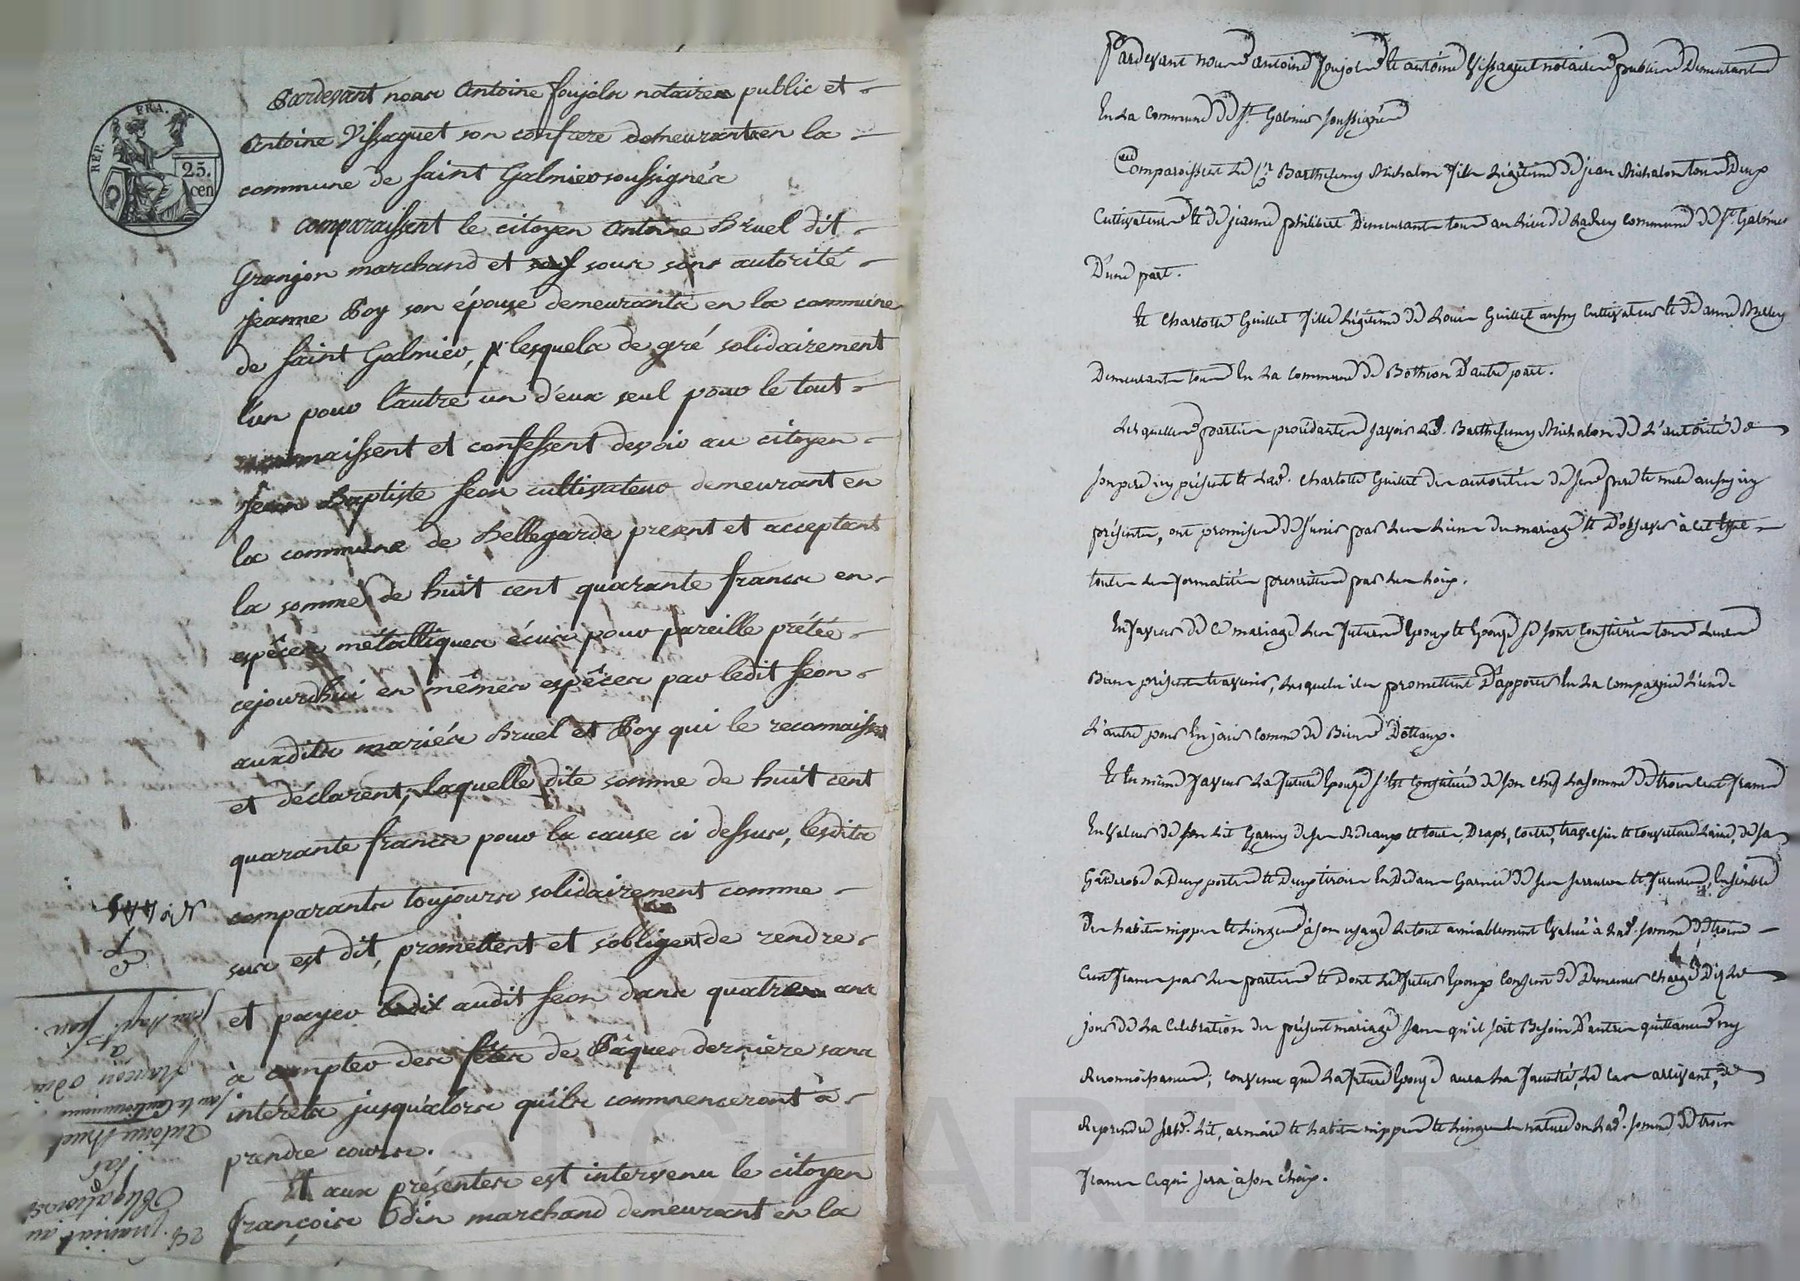 Pardevant nous Antoine foujols notaires public et
Antoine Vissaguet son confrere demeurants en la
commune de saint Galmier soussignés
REP. FRA.
25.
cen
comparaissent le citoyen Antoine Bruel dit
Granjon marchand et sous son autorité
jeanne Poy son épouse demeurants en la commune
de saint Galmier, lesquels de gré solidairement
l'un pour l'autre un d'eux seul pour le tout
reconnaissent et confessent devoir au citoyen
Jean Baptiste seon cultivateur demeurant en
la commune de Bellegarde present et acceptant
la somme de huit cent quarante francs en
espêces métalliques écus pour pareille prétée
cejourdhui en mêmes espêces par ledit seon
auxdits mariés Bruel et Poy qui le reconnaissent
et déclarent, laquelle dite somme de huit cent
quarante francs pour la cause ci dessus, lesdits
comparants toujours solidairement comme
sus est dit, promettent et s'obligent de rendre
et payer audit seon dans quatre ans
à compter des fêtes de Pâques dernière sans
intérêts jusqu'alors qu'ils commenceront à
prendre cours.
Et aux présentes est intervenu le citoyen
françois Odin marchand demeurant en la
obligations
antoine Bruel
françois odin
jean Bapt. seon
Pardevant nous antoine foujols et antoine Vissaguet notaires publics Demeurants
En La Commune de St. Galmier soussignés
Comparoissent Le Cn. Barthelemy Michalon fils Légitime de jean Michalon tous Deux
Cultivateurs et de jeanne philibert Demeurants tous au Lieu de commune de St. Galmier
D'une part.
et Charlotte Guillet fille Légitime de Louis Guillet aussy Cultivateur et de anne
Demeurants tous En La Commune de Bothéon D'autre part.
Lesquelles parties procedantes savoir Led. Barthelemy Michalon de L'autorité de
son pere icy présent et Lad. Charlotte Guillet des autorités de ses pere et mere aussy icy
présents, ont promis de s'unir par Les Liens du mariage et D'observer à cet effet
toutes Les formalités prescrites par Les Loix.
En faveur de ce mariage Les futurs Epoux et Epouse se sont Constitués tous Leurs
Biens présents et avenir, Lesquels ils promettent D'apporter En La Compagnie L'un de
L'autre pour En jouir comme de Biens Dotaux.
Et En même faveur La future Epouse s'est Constituée de son chef La somme de trois cent francs
En valeur de son Lit Garny de ses Rideaux et tour, Draps, coetre, traversin et couverture Laine, de sa
Garderobe à Deux portes et Deux tiroirs En Dedans Garnie de ses serrures et ferrures, Ensemble
Des habits nippes et Linges à son usage Le tout amiablement Evalué à Lad. somme de trois
Cent francs par Les parties et Dont Le futur Epoux Consent de Demeurer Chargé Dès Le
jour de La Celebration du présent mariage sans qu'il soit Besoin D'autre quittance ny
Reconnoissance; convenu que La future Epouse aura La faculté, Le Cas arrivant, de
Reprendre sesd. Lit, armoire et habits nippes et Linges En nature ou Lad. somme de trois
francs Ce qui sera à son Choix.
LOLAREYRON